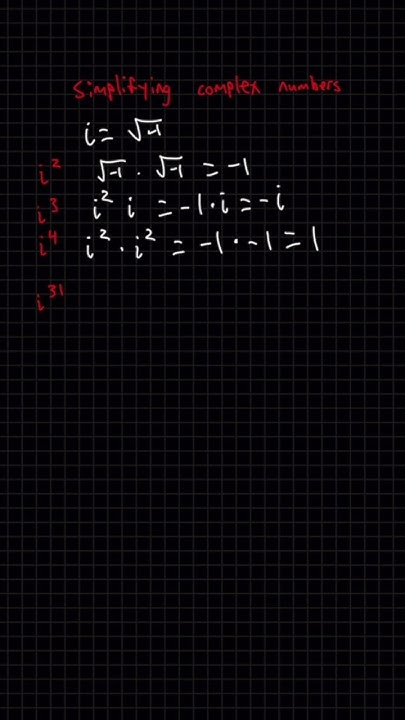 Simplifying complex numbers
i = √-1
i² √-1 · √-1 = -1
i³ i² i = -1 · i = -i
i⁴ i² · i² = -1 · -1 = 1
i³¹